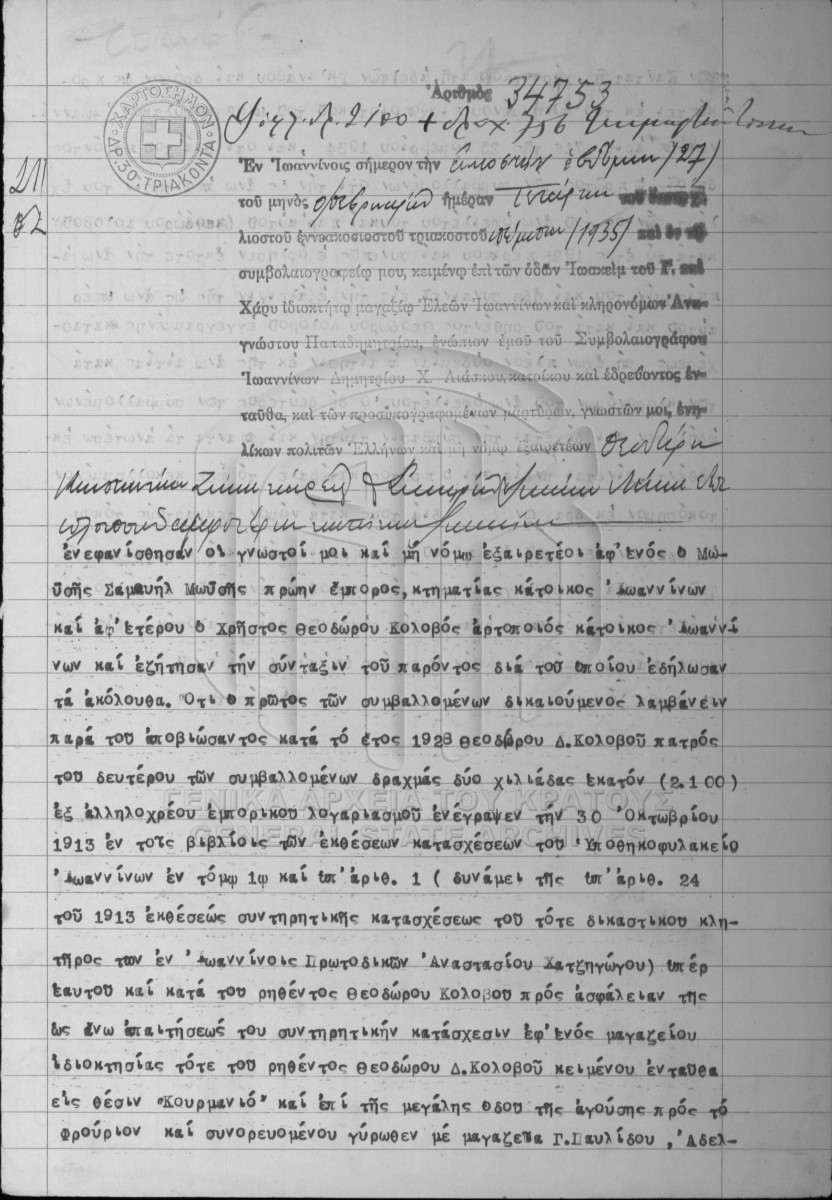 Ἀριθμὸς 34753
ΧΑΡΤΟΣΗΜΟΝ
ΔΡ. 30. ΤΡΙΑΚΟΝΤΑ
211
Ἐν Ἰωαννίνοις σήμερον τὴν εἰκοστὴν ἑβδόμην (27)
τοῦ μηνὸς Φεβρουαρίου ἡμέραν Τετάρτην τοῦ
λιοστοῦ ἐννεακοσιοστοῦ τριακοστοῦ πέμπτου (1935) καὶ ἐν τῷ
συμβολαιογραφείῳ μου, κειμένῳ ἐπὶ τῶν ὁδῶν Ἰωακεὶμ τοῦ Γ. καὶ
Χάρυ ἰδιοκτήτῳ μαγαζίῳ Ἐλεῶν Ἰωαννίνων καὶ κληρονόμων Ἀνα-
γνώστου Παπαδημητρίου, ἐνώπιον ἐμοῦ τοῦ Συμβολαιογράφου
Ἰωαννίνων Δημητρίου Χ. Λιάσκου, κατοίκου καὶ ἑδρεύοντος ἐν-
ταῦθα, καὶ τῶν προσυπογραφομένων μαρτύρων, γνωστῶν μοι, ἐνη-
λίκων πολιτῶν Ἑλλήνων καὶ μὴ νόμῳ ἐξαιρετέων
ἐνεφανίσθησαν οἱ γνωστοί μοι καί μή νόμῳ ἐξαιρετέοι ἀφ'ἑνός ὁ Μω-
ϋσῆς Σαμουήλ Μωϋσῆς πρώην ἔμπορος, κτηματίας κάτοικος Ἰωαννίνων
καί ἀφ'ἑτέρου ὁ Χρῆστος Θεοδώρου Κολοβός ἀρτοποιός κάτοικος Ἰωαννί
νων καί ἐζήτησαν τήν σύνταξιν τοῦ παρόντος διά τοῦ ὁποίου ἐδήλωσαν
τά ἀκόλουθα. Ὅτι ὁ πρῶτος τῶν συμβαλλομένων δικαιούμενος λαμβάνειν
παρά τοῦ ἀποβιώσαντος κατά τό ἔτος 1928 Θεοδώρου Δ.Κολοβοῦ πατρός
τοῦ δευτέρου τῶν συμβαλλομένων δραχμάς δύο χιλιάδας ἑκατόν (2.100)
ἐξ ἀλληλοχρέου ἐμπορικοῦ λογαριασμοῦ ἐνέγραψεν τήν 30 Ὀκτωβρίου
1913 ἐν τοῖς βιβλίοις τῶν ἐκθέσεων κατασχέσεων τοῦ Ὑποθηκοφυλακείο
Ἰωαννίνων ἐν τόμῳ 1ῳ καί ὑπ'ἀριθ. 1 ( δυνάμει τῆς ὑπ'ἀριθ. 24
τοῦ 1913 ἐκθέσεώς συντηρητικῆς κατασχέσεως τοῦ τότε δικαστικοῦ κλη-
τῆρος των ἐν Ἰωαννίνοις Πρωτοδικῶν Ἀναστασίου Χατζηγώγου) ὑπέρ
ἑαυτοῦ καί κατά τοῦ ρηθέντος Θεοδώρου Κολοβοῦ πρός ἀσφάλειαν τῆς
ὡς ἄνω ἀπαιτήσεώς του συντηρητικήν κατάσχεσιν ἐφ'ἑνός μαγαζείου
ἰδιοκτησίας τότε τοῦ ρηθέντος Θεοδώρου Δ.Κολοβοῦ κειμένου ἐνταῦθα
εἰς θέσιν "Κουρμανιό" καί ἐπί τῆς μεγάλης ὁδοῦ τῆς ἀγούσης πρός τό
Φρούριον καί συνορευομένου γύρωθεν μέ μαγαζεῖα Γ.Παυλίδου , Ἀδελ-
ΓΕΝΙΚΑ ΑΡΧΕΙΑ ΤΟΥ ΚΡΑΤΟΥΣ
GENERAL STATE ARCHIVES